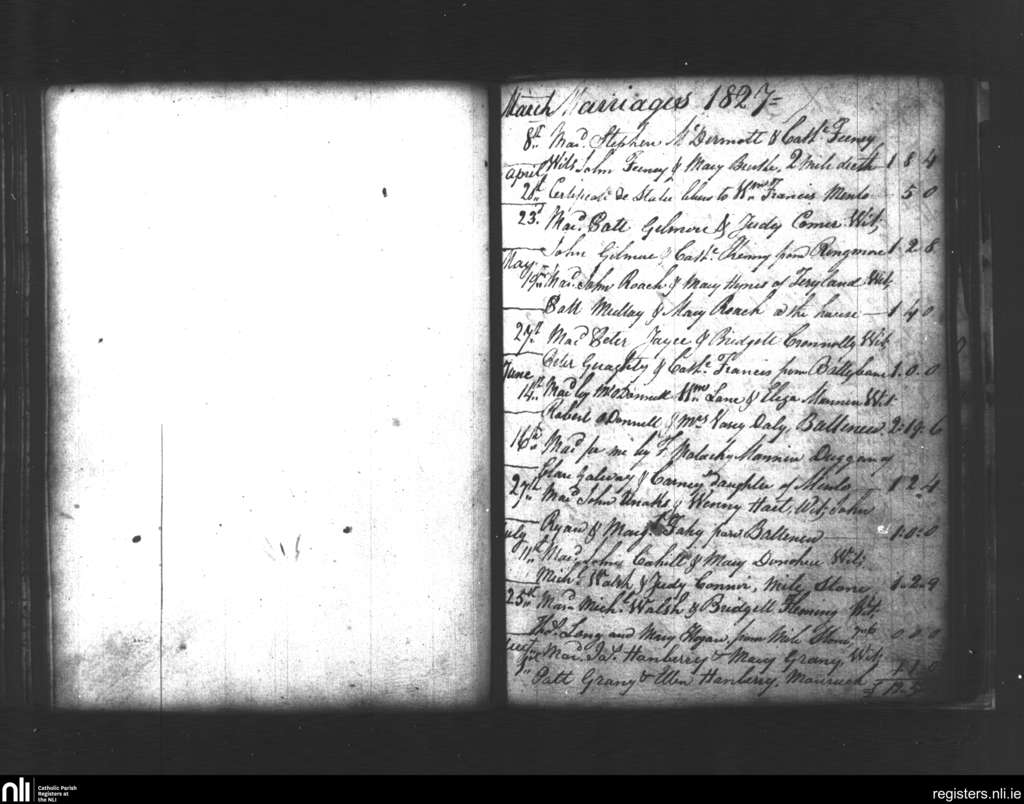 March Marriages 1827=
8th Mard. Stephen McDermott & Cathe. Feeney
Wits John Feeney & Mary Burke, 2 mile 1 8 4
April
20th Certificate de Statu to Wm. Francis Menlo 5 0
23d Mard. Patt Gilmore & Judy Comer Wit;
John Gilmore & Cathe. Kenny from Ringmore 1 2 8
May
19th Mard. John Roach & Mary Hynes of Teryland Wit;
Patt Mullay & Mary Roach at the house 1 4 0
27th Mard Peter Jayce & Bridgett Connolly Wit
Peter Geraghty & Cathe. Francis from Ballybane 1. 0. 0
June
14th Mard by Mr. O'Donnell Wm. Lane & Eliza Mannin Wit
Robert O'Donnell & Mrs Daly, Ballenew 2: 19: 6
16th Mard for me by F. Malachy Mannin Duggan of
Clare Galway & Carney daughter of Menlo 1 2. 4
27th Mard John & Wenny Hart, Wit, John
Ryan & Mary Fahy from Ballenew 1. 0: 0
July
11th Mard. Cahill & Mary Donohue Wit;
Michl. Walsh & Judy Connor, Mile Stone 1. 2. 9
25th Mard Michl. Walsh & Bridgett Fleming Wit
Thos. Long and Mary Hogan, from Mile Stone
Mard. Jas. Hanberry & Mary Grany, Wit;
Patt Grany & Ellen Hanberry,
nli Catholic Parish
Registers at
the NLI
registers.nli.ie